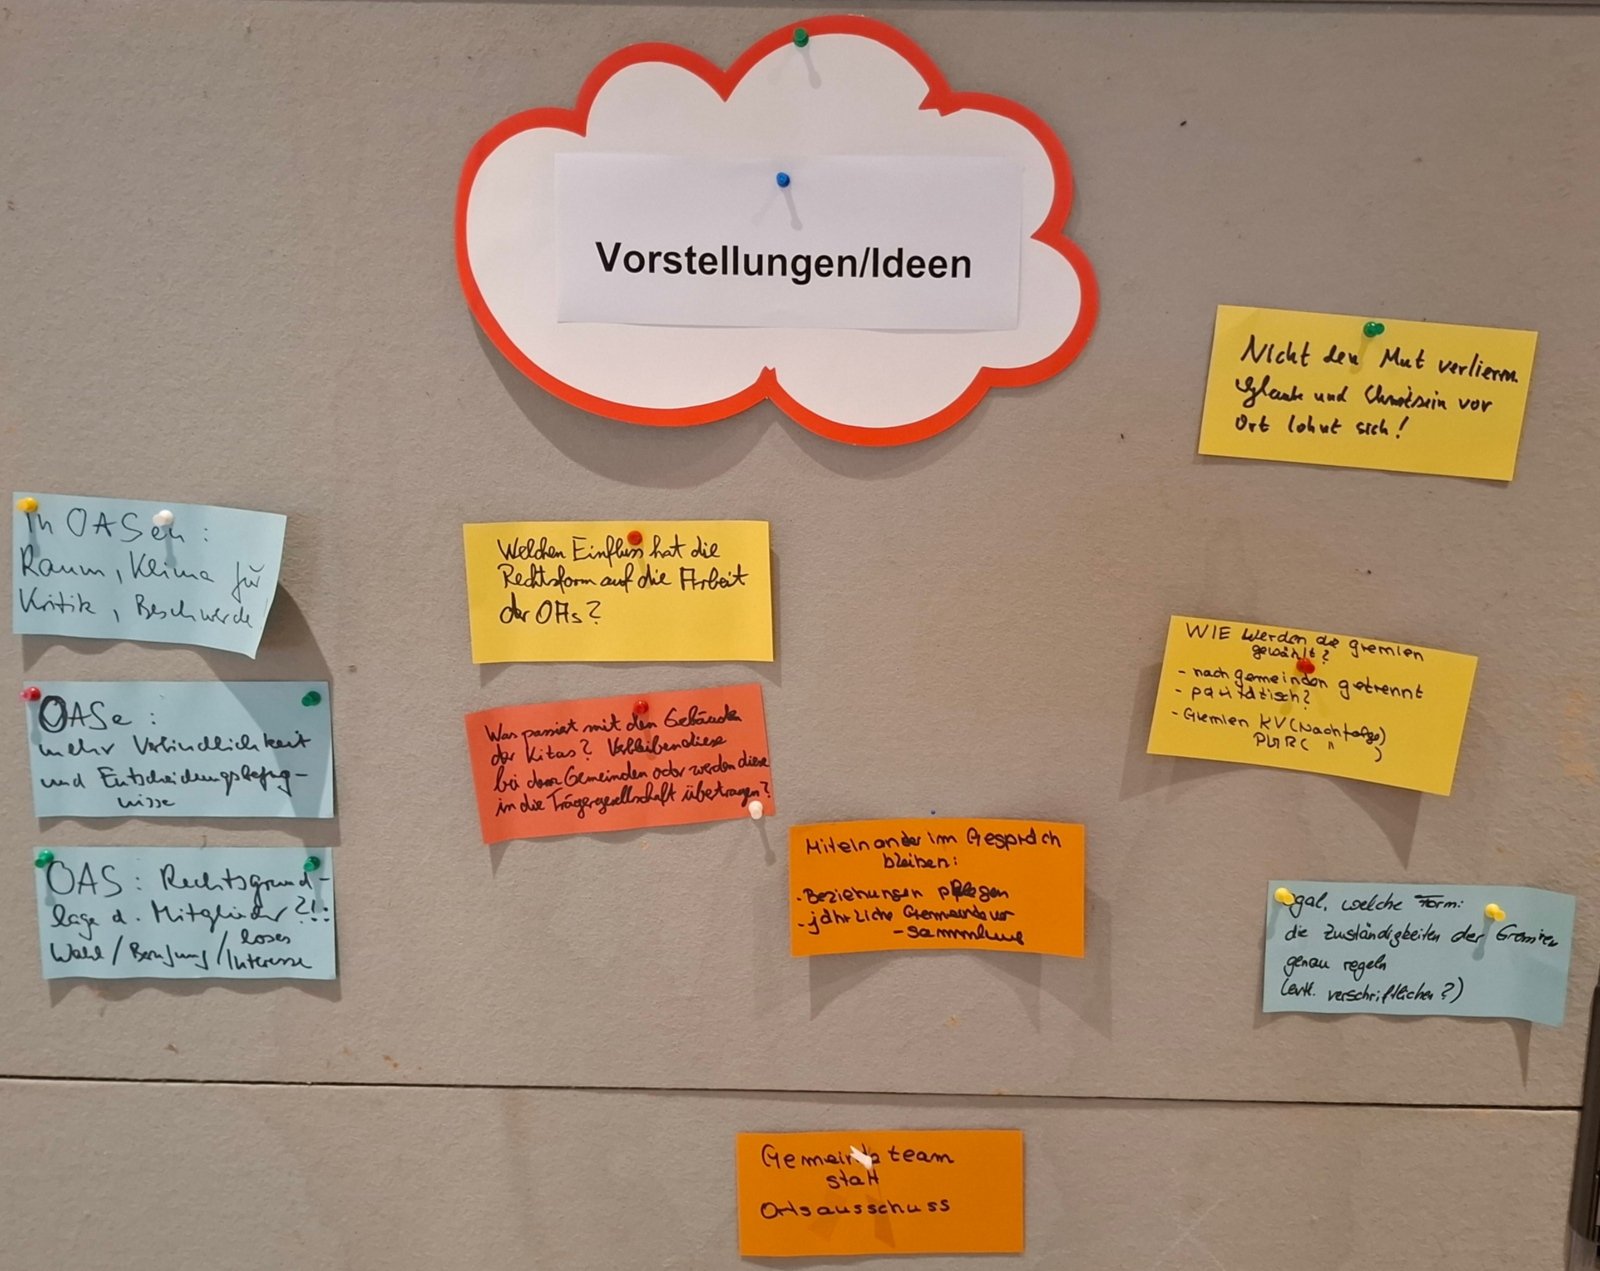 Vorstellungen/Ideen
Nicht den Mut verlieren
Glaube und Christsein vor
Ort lohnt sich!
In OASen:
Raum, Klima für
Kritik, Beschwerde
OASe:
mehr Verbindlichkeit
und Entscheidungsbefug-
nisse
OAS: Rechtsgrund-
lage d. Mitglieder?!:
Wahl/Berufung/loses
Interesse
Welchen Einfluss hat die
Rechtsform auf die Arbeit
der OAs?
Was passiert mit den Gebäuden
der Kitas? Verbleiben diese
bei den Gemeinden oder werden diese
in die Trägergesellschaft übertragen?
Miteinander im Gespräch
bleiben:
- Beziehungen pflegen
- jährliche Gemeindever
- sammlung
WIE werden die gremien
gewählt?
- nach gemeinden getrennt
- paritätisch?
- Gremien KV (Nachfolge)
PGR ( " )
egal, welche Form:
die Zuständigkeiten der Gremien
genau regeln
(evtl. verschriftlichen?)
Gemeindeteam
statt
Ortsausschuss